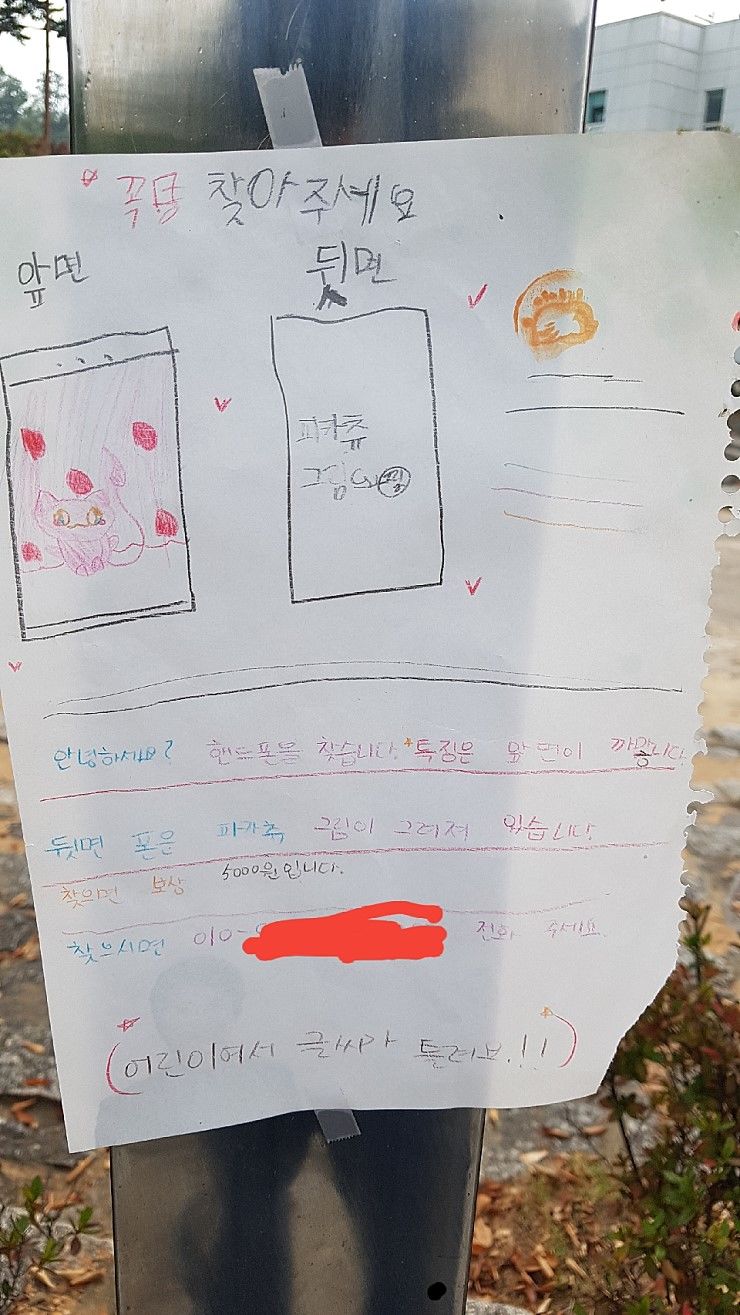 꼭좀 찾아주세요
앞면 뒷면
피카츄
그림
안녕하세요? 핸드폰을 찾습니다. 특징은 앞면이 까맣니다
뒷면 폰은 피카츄 그림이 그려져 있습니다
찾으면 보상 5000원입니다.
찾으시면 010- 전화 주세요.
(어린이여서 글씨가 틀려보.!!)